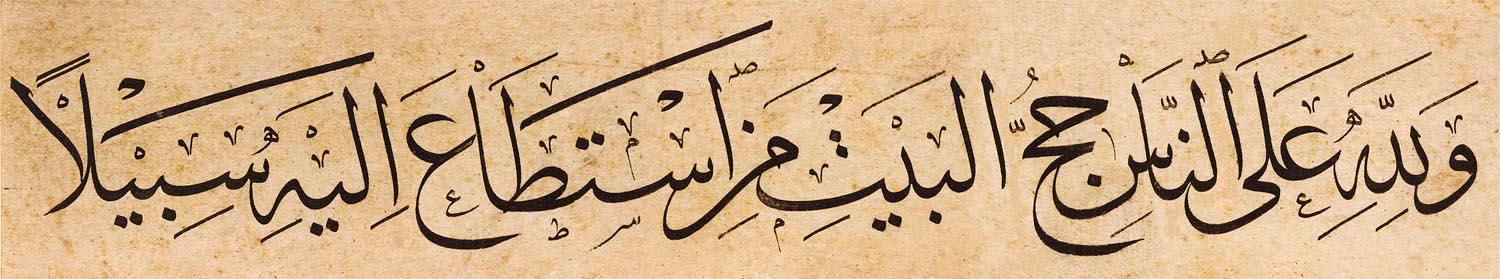 وَلِلّٰهِ عَلَى النَّاسِ حِجُّ الْبَيْتِ مَنِ اسْتَطَاعَ اِلَيْهِ سَبِيلًا